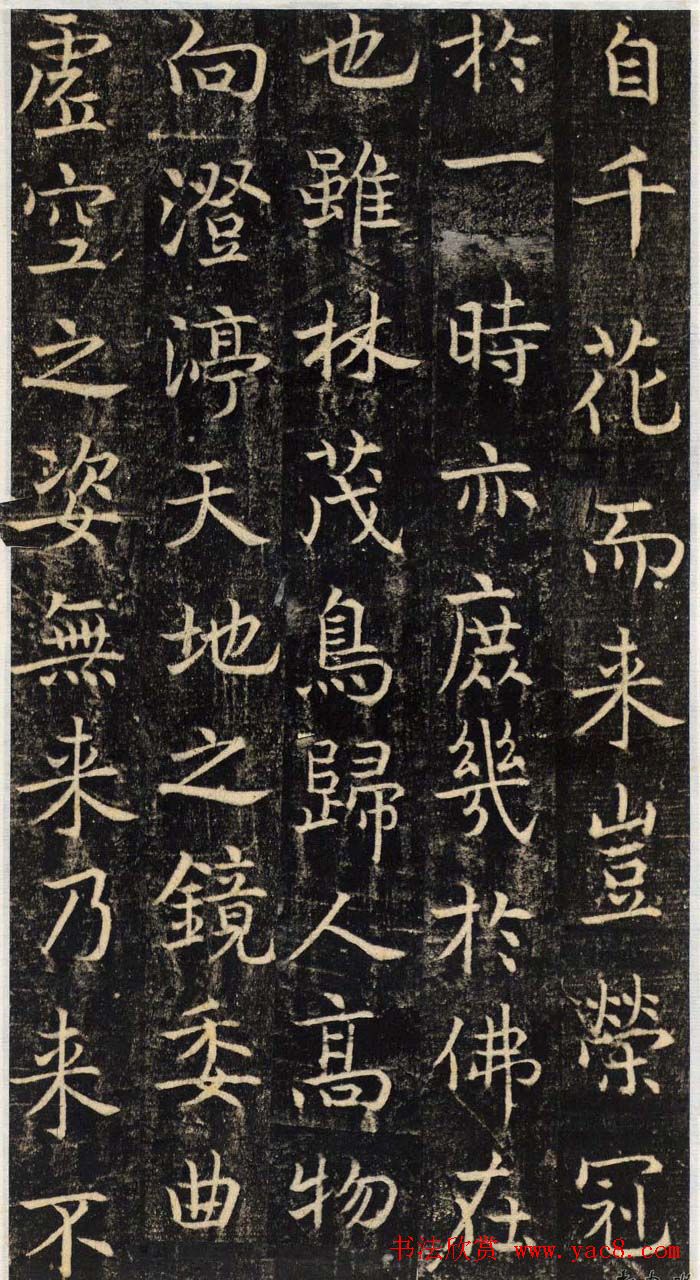 自千花而来豈榮冠
於一時亦庶幾於佛在
也雖林茂鳥歸人高物
向澄渟天地之鏡委曲
虛空之姿無来乃来不
书法欣赏 www.yac8.com